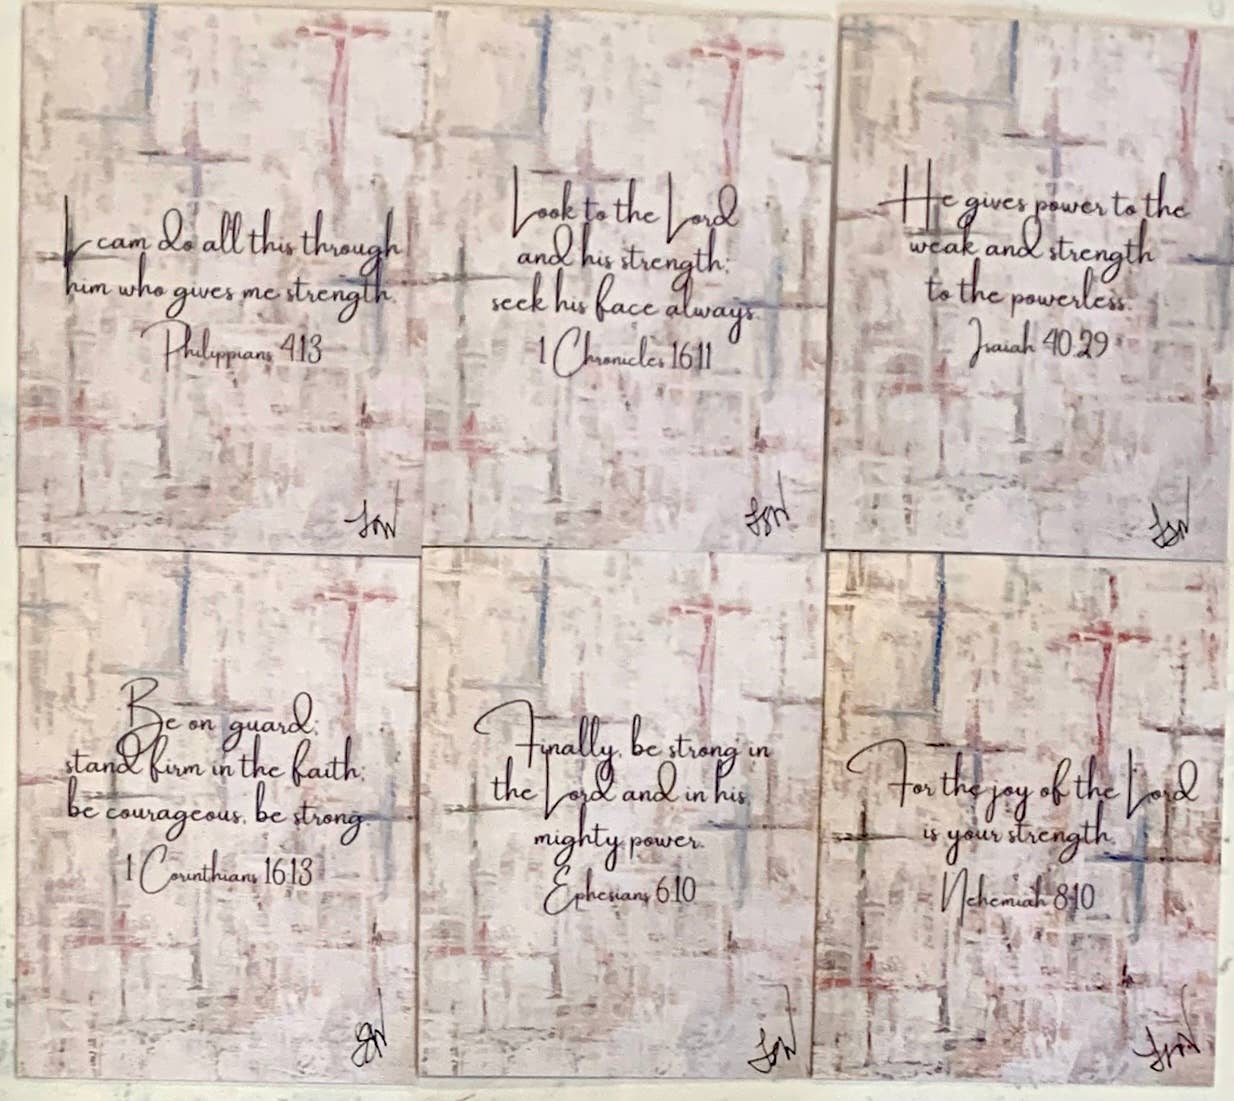 I can do all this through
him who gives me strength.
Philippians 4:13
Look to the Lord
and his strength;
seek his face always.
1 Chronicles 16:11
He gives power to the
weak and strength
to the powerless.
Isaiah 40:29
Be on guard;
stand firm in the faith;
be courageous; be strong.
1 Corinthians 16:13
Finally, be strong in
the Lord and in his
mighty power.
Ephesians 6:10
For the joy of the Lord
is your strength.
Nehemiah 8:10